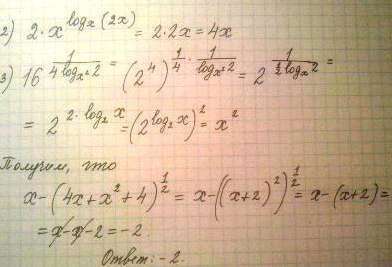 2) 2·x^{log_x(2x)} = 2·2x = 4x
3) 16^{\frac{1}{4log_{x^2}2}} = (2^4)^{\frac{1}{4}·\frac{1}{log_{x^2}2}} = 2^{\frac{1}{\frac{1}{2}log_x2}} =
= 2^{2·log_2x} = (2^{log_2x})^2 = x^2
Получим, что
x-(4x+x^2+4)^{\frac{1}{2}} = x-((x+2)^2)^{\frac{1}{2}} = x-(x+2) =
= x-x-2 = -2.
Ответ: -2.